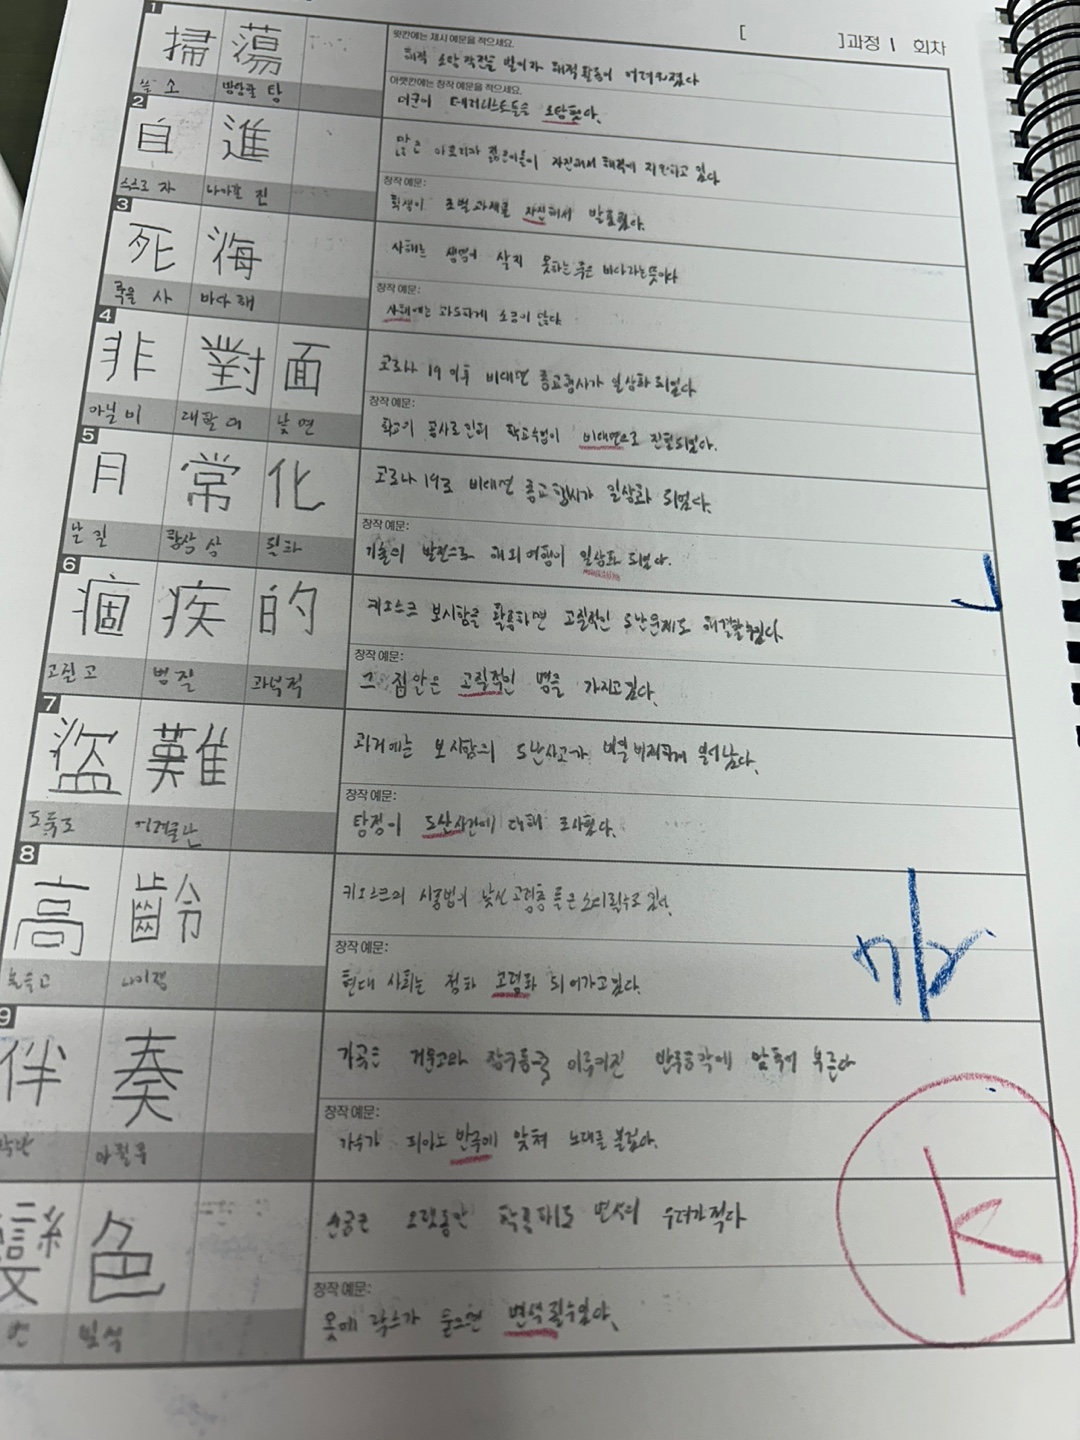 [ ]과정 1 회차
1
掃 蕩
쓸 소 방탕할 탕
윗칸에는 제시 예문을 적으세요.
해적 소탕 작전을 벌이자 해적활동이 어려워졌다
아랫칸에는 창작 예문을 적으세요.
미군이 테러리스트들을 소탕했다.
2
自 進
스스로 자 나아갈 진
많은 아프리카 젊은이들이 자진해서 해적에 지원하고 있다
창작 예문:
학생이 조별과제를 자진해서 발표했다.
3
死 海
죽을 사 바다 해
사해는 생명이 살지 못하는 죽은 바다라는 뜻이다
창작 예문:
사해에는 과도하게 소금이 많다.
4
非 對 面
아닐 비 대할 대 낯 면
코로나 19 이후 비대면 종교행사가 일상화 되었다
창작 예문:
학교가 공사로 인해 학교수업이 비대면으로 진행되었다.
5
日 常 化
날 일 항상 상 될 화
코로나 19로 비대면 종교 행사가 일상화 되었다.
창작 예문:
기술의 발전으로 해외여행이 일상화 되었다.
6
痼 疾 的
고질 고 병 질 과녁 적
키오스크 보시함을 활용하면 고질적인 도난문제도 해결할 수 있다.
창작 예문:
그 집안은 고질적인 병을 가지고 있다.
7
盜 難
도둑 도 어려울 난
과거에는 보시함의 도난사고가 비일비재하게 일어났다.
창작 예문:
탐정이 도난사건에 대해 조사했다.
8
高 齡
높을 고 나이 령
키오스크의 사용법이 낯선 고령층 들은
창작 예문:
현대 사회는 점차 고령화 되어가고 있다.
9
伴 奏
짝 반 아뢸 주
가곡은 거문고와 장구등으로 이루어진 반주음악에 맞추어 부른다
창작 예문:
가수가 피아노 반주에 맞춰 노래를 불렀다.
變 色
변 빛 색
한글은 오랫동안 변색의 우려가 적다
창작 예문:
옷에 락스가 묻으면 변색될수있다.
k